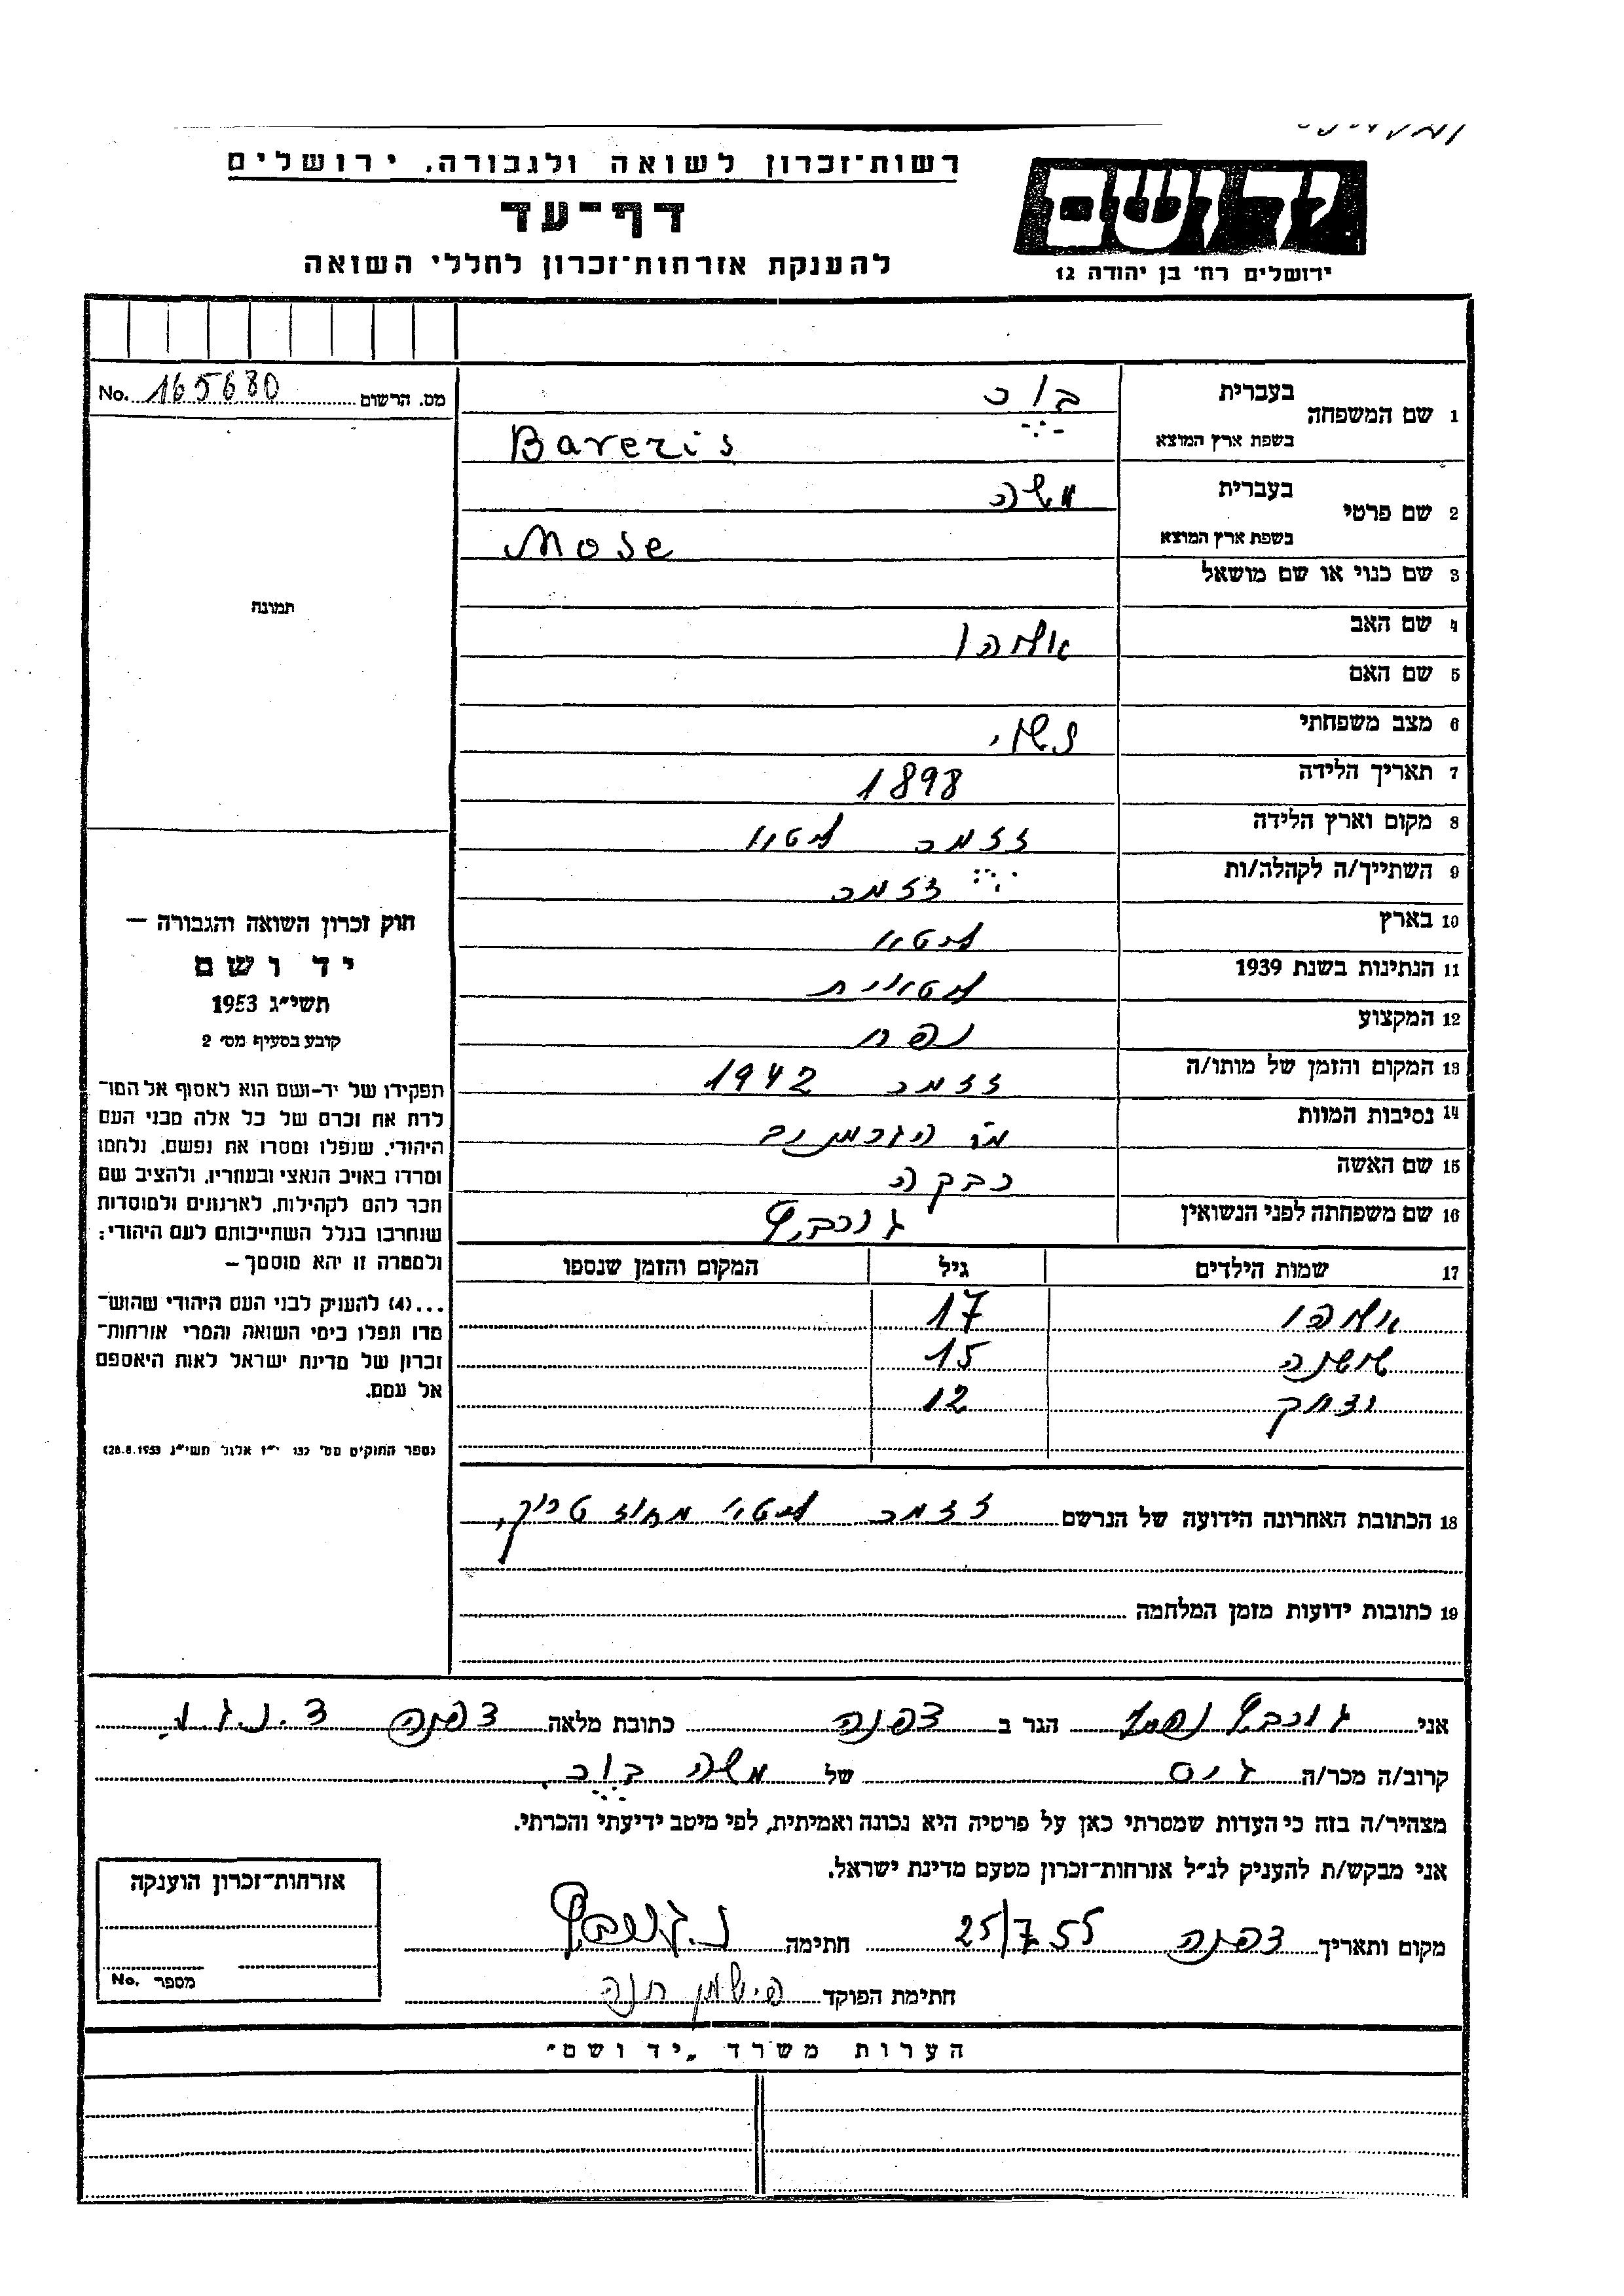 רשות־זכרון לשואה ולגבורה, ירושלים
דף־עד
להענקת אזרחות־זכרון לחללי השואה
יד ושם
ירושלים רח׳ בן יהודה 12
No. 165680 מס. הרשום
1 שם המשפחה בעברית
בשפת ארץ המוצא Baveris
2 שם פרטי בעברית משה
בשפת ארץ המוצא Mose
3 שם כנוי או שם מושאל
4 שם האב אליהו
5 שם האם
6 מצב משפחתי נשוי
7 תאריך הלידה 1898
8 מקום וארץ הלידה לטוי
9 השתייך/ה לקהלה/ות
10 בארץ לטוי
11 הנתינות בשנת 1939 לטוית
12 המקצוע נפח
13 המקום והזמן של מותו/ה 1942
14 נסיבות המוות הגרמנים
15 שם האשה רבקה
16 שם משפחתה לפני הנשואין
17 שמות הילדים גיל המקום והזמן שנספו
אליהו 17
שושנה 15
יצחק 12
18 הכתובת האחרונה הידועה של הנרשם לטוי מחוז
19 כתובות ידועות מזמן המלחמה
תמונה
חוק זכרון השואה והגבורה –
יד ושם
תשי״ג 1953
קובע בסעיף מס׳ 2
תפקידו של יד-ושם הוא לאסוף אל המו־
לדת את זכרם של כל אלה מבני העם
היהודי, שנפלו ומסרו את נפשם, נלחמו
ומרדו באויב הנאצי ובעוזריו, ולהציב שם
וזכר להם לקהילות, לארגונים ולמוסדות
שנחרבו בגלל השתייכותם לעם היהודי;
ולמטרה זו יהא מוסמך –
...(4) להעניק לבני העם היהודי שהוש־
מדו ונפלו בימי השואה והמרי אזרחות־
זכרון של מדינת ישראל לאות היאספם
אל עמם.
(ספר החוקים מס׳ 132 י״ז אלול תשי״ג 28.8.1953)
אני הגר ב דפנה כתובת מלאה דפנה
קרוב/ה מכר/ה גיס של משה
מצהיר/ה בזה כי העדות שמסרתי כאן על פרטיה היא נכונה ואמיתית, לפי מיטב ידיעתי והכרתי.
אני מבקש/ת להעניק לנ״ל אזרחות־זכרון מטעם מדינת ישראל.
מקום ותאריך דפנה 25/7 55 חתימה
חתימת הפוקד פישמן חנה
אזרחות־זכרון הוענקה
מספר No.
הערות משרד „יד ושם״